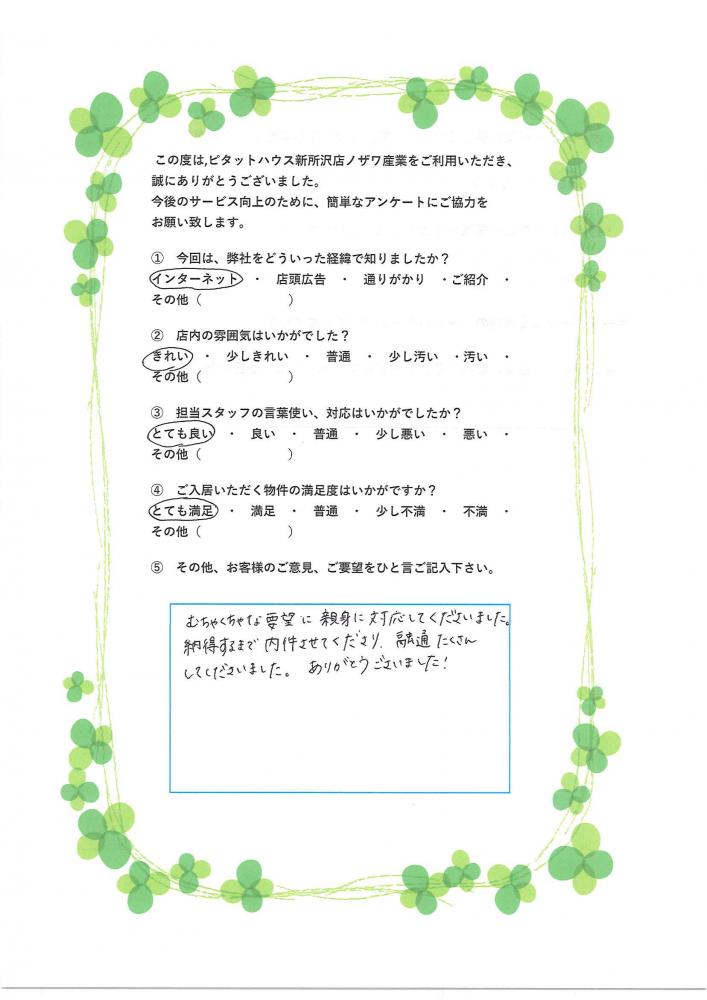 この度は,ピタットハウス新所沢店ノザワ産業をご利用いただき、
誠にありがとうございました。
今後のサービス向上のために、簡単なアンケートにご協力を
お願い致します。
① 今回は、弊社をどういった経緯で知りましたか？
インターネット ・ 店頭広告 ・ 通りがかり ・ご紹介 ・
その他（ ）
② 店内の雰囲気はいかがでした？
きれい ・ 少しきれい ・ 普通 ・ 少し汚い ・汚い ・
その他（ ）
③ 担当スタッフの言葉使い、対応はいかがでしたか？
とても良い ・ 良い ・ 普通 ・ 少し悪い ・ 悪い ・
その他（ ）
④ ご入居いただく物件の満足度はいかがですか？
とても満足 ・ 満足 ・ 普通 ・ 少し不満 ・ 不満 ・
その他（ ）
⑤ その他、お客様のご意見、ご要望をひと言ご記入下さい。
むちゃくちゃな要望に親身に対応してくださいました。
納得するまで内件させてくださり、融通たくさん
してくださいました。 ありがとうございました！